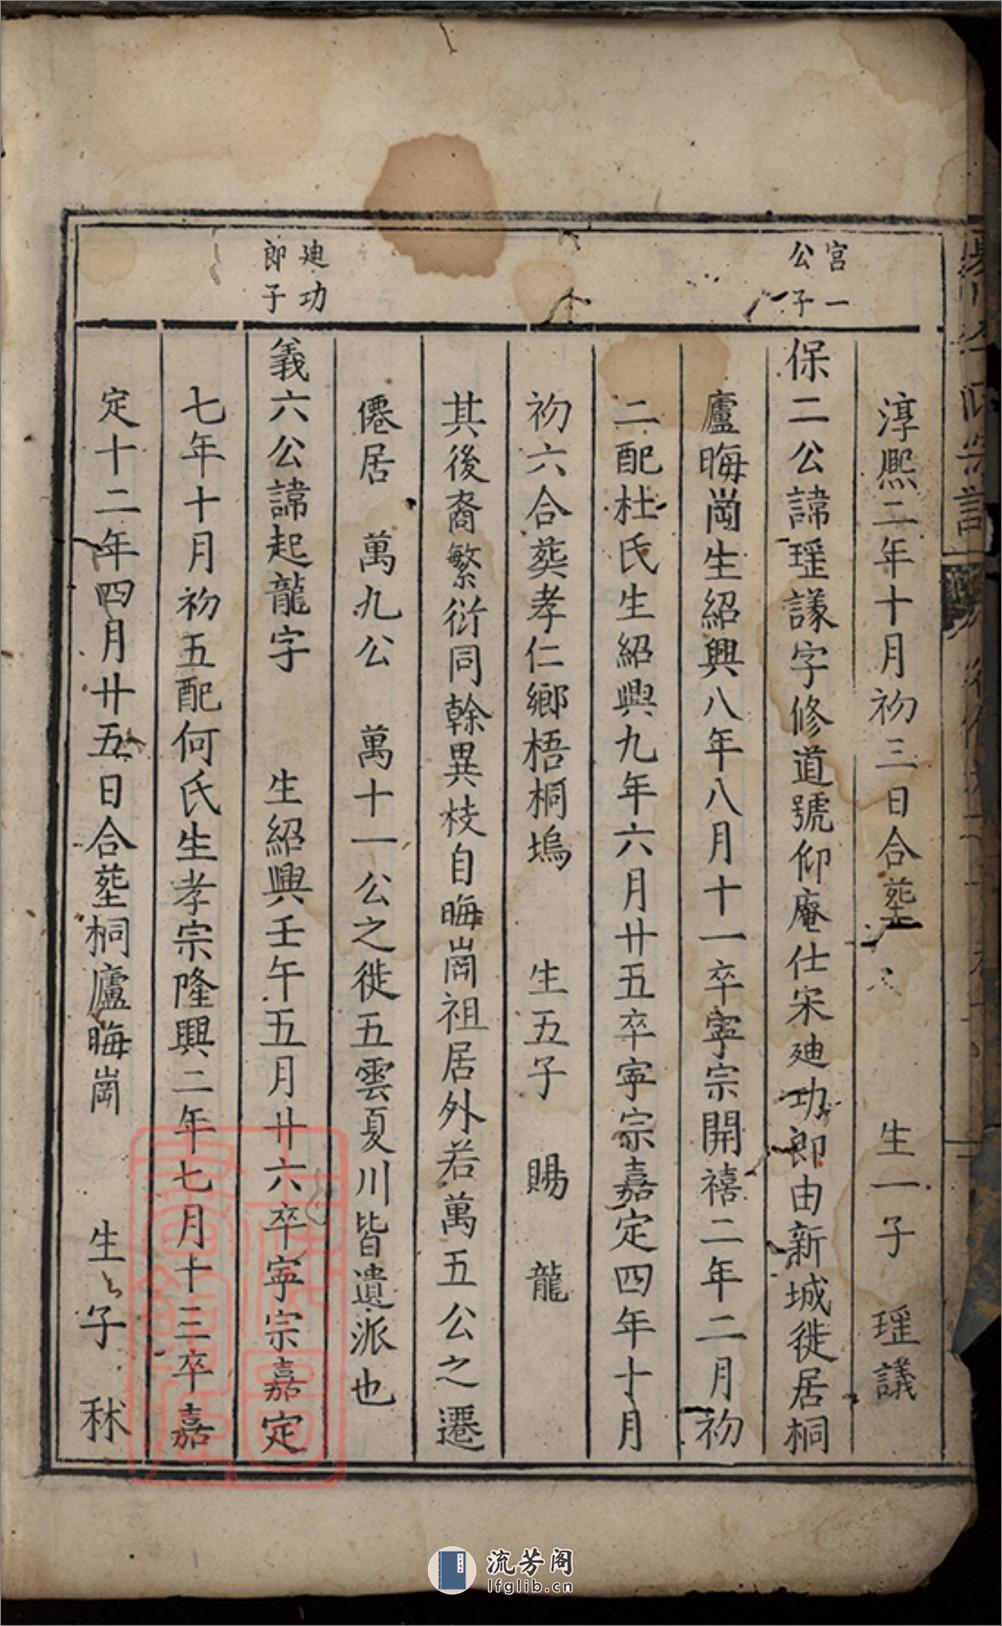 宫一
公子
淳熙二年十月初三日合塟 生一子 瑶議
保二公諱瑶謙字修道號仰庵仕宋廸功郎由新城徙居桐
廬晦崗生紹興八年八月十一卒寧宗開禧二年二月初
二配杜氏生紹興九年六月廿五卒寧宗嘉定四年十月
初六合葬孝仁鄉梧桐塢 生五子 賜 龍
其後裔繁衍同幹異枝自晦崗祖居外若萬五公之遷
僊居 萬九公 萬十一公之徙五雲夏川皆遺派也
廸功
郎子
義六公諱起龍字 生紹興壬午五月廿六卒寧宗嘉定
七年十月初五配何氏生孝宗隆興二年七月十三卒嘉
定十二年四月廿五日合塟桐廬晦崗 生子 秫
流芳阁
lfglib.cn